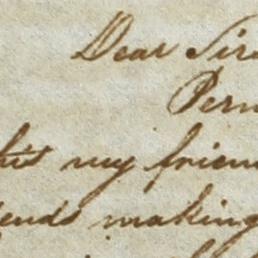 Dear Sir
Perm
his my frien
ends making